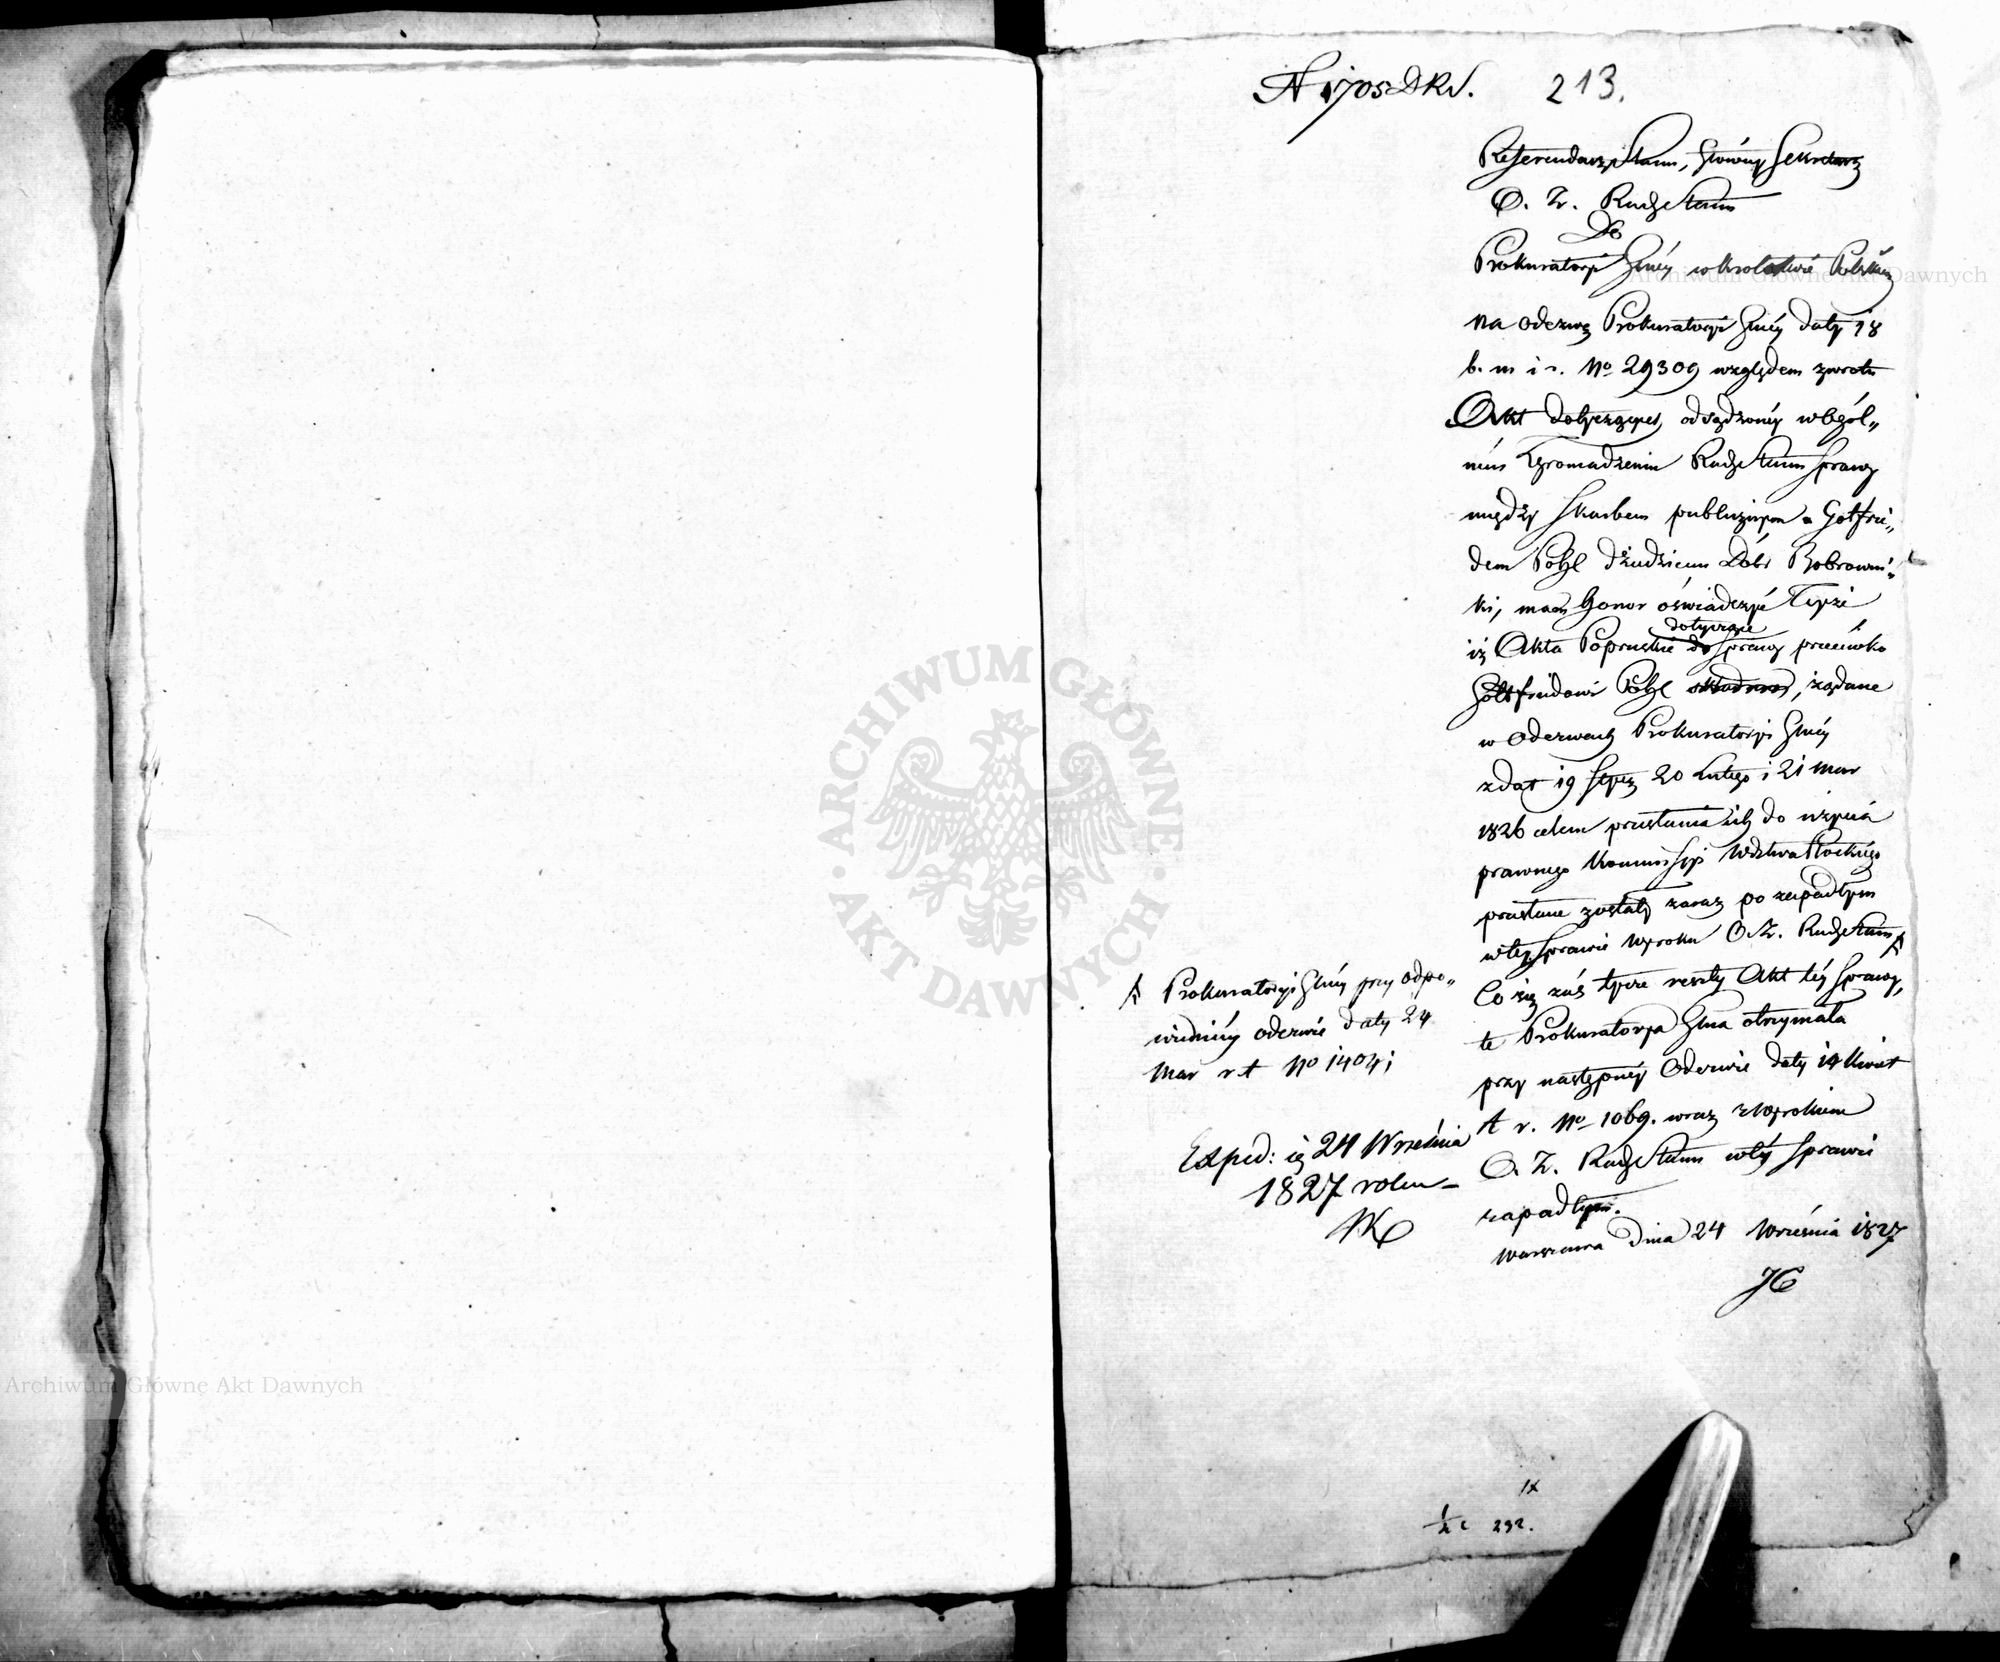 N 1705 DRS. 213.
Referendarz Stanu, Główny Sekretarz
O. Z. Rady Stanu
Do
Prokuratoryi Gnéy w Krolestwie Polskim
na odezwę Prokuratoryi Gnéy daty 18
b. m i r. No 29309 względem zwrotu
Akt dotyczących odsądzonéy w Ogól„
ném Zgromadzeniu Rady Stanu Sprawy
między Skarbem publicznym a Gotfrie„
dem Pohl dziedzicem Dóbr Bobrowni„
ki, mam honor oświadczyć Teyże
iż Akta Popruskie dotyczące Sprawy przeciwko
Gottfriedowi Pohl, żądane
w Odezwach Prokuratoryi Gnéy
z dat 19 Stycz 20 Lutego i 21 Mar
1826 celem przesłania ich do użycia
prawnego Kommissyi Wdztwa Płockiego
przesłane zostały zaraz po zapadłym
w tey Sprawie Wyroku O. Z. Rady Stanu
Co się zaś tycze reszty Akt téy Sprawy,
te Prokuratorya Gna otrzymała
przy następnéy Odezwie daty 14 Kwiet
t r. No 1069. wraz z Wyrokiem
O. Z. Rady Stanu w téy Sprawie
zapadłym.
Warszawa dnia 24 Września 1827
JC
Prokuratoryi Gnéy przy odpo„
wiedniéy odezwie daty 24
Mar r.t No 1404;
Exped: ię 24 Września
1827 roku –
NK
IX
½ c 232.
ARCHIWUM GŁÓWNE AKT DAWNYCH
Archiwum Główne Akt Dawnych
Archiwum Główne Akt Dawnych